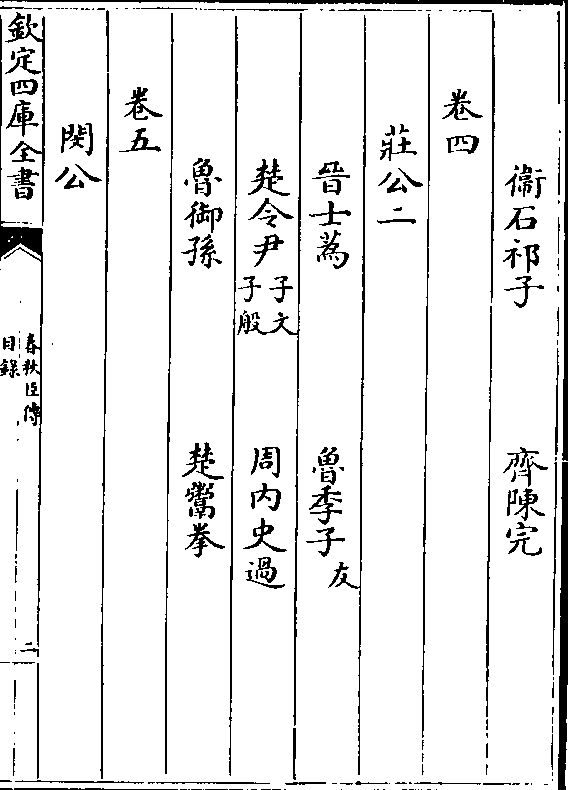 衞石祁子　齊陳完
卷四
莊公二
晉士蔿　魯季子友
楚令尹子文子般　周内史過
魯御孫　楚鬻拳
卷五
閔公
欽定四庫全書
春秋臣傳
目録
二